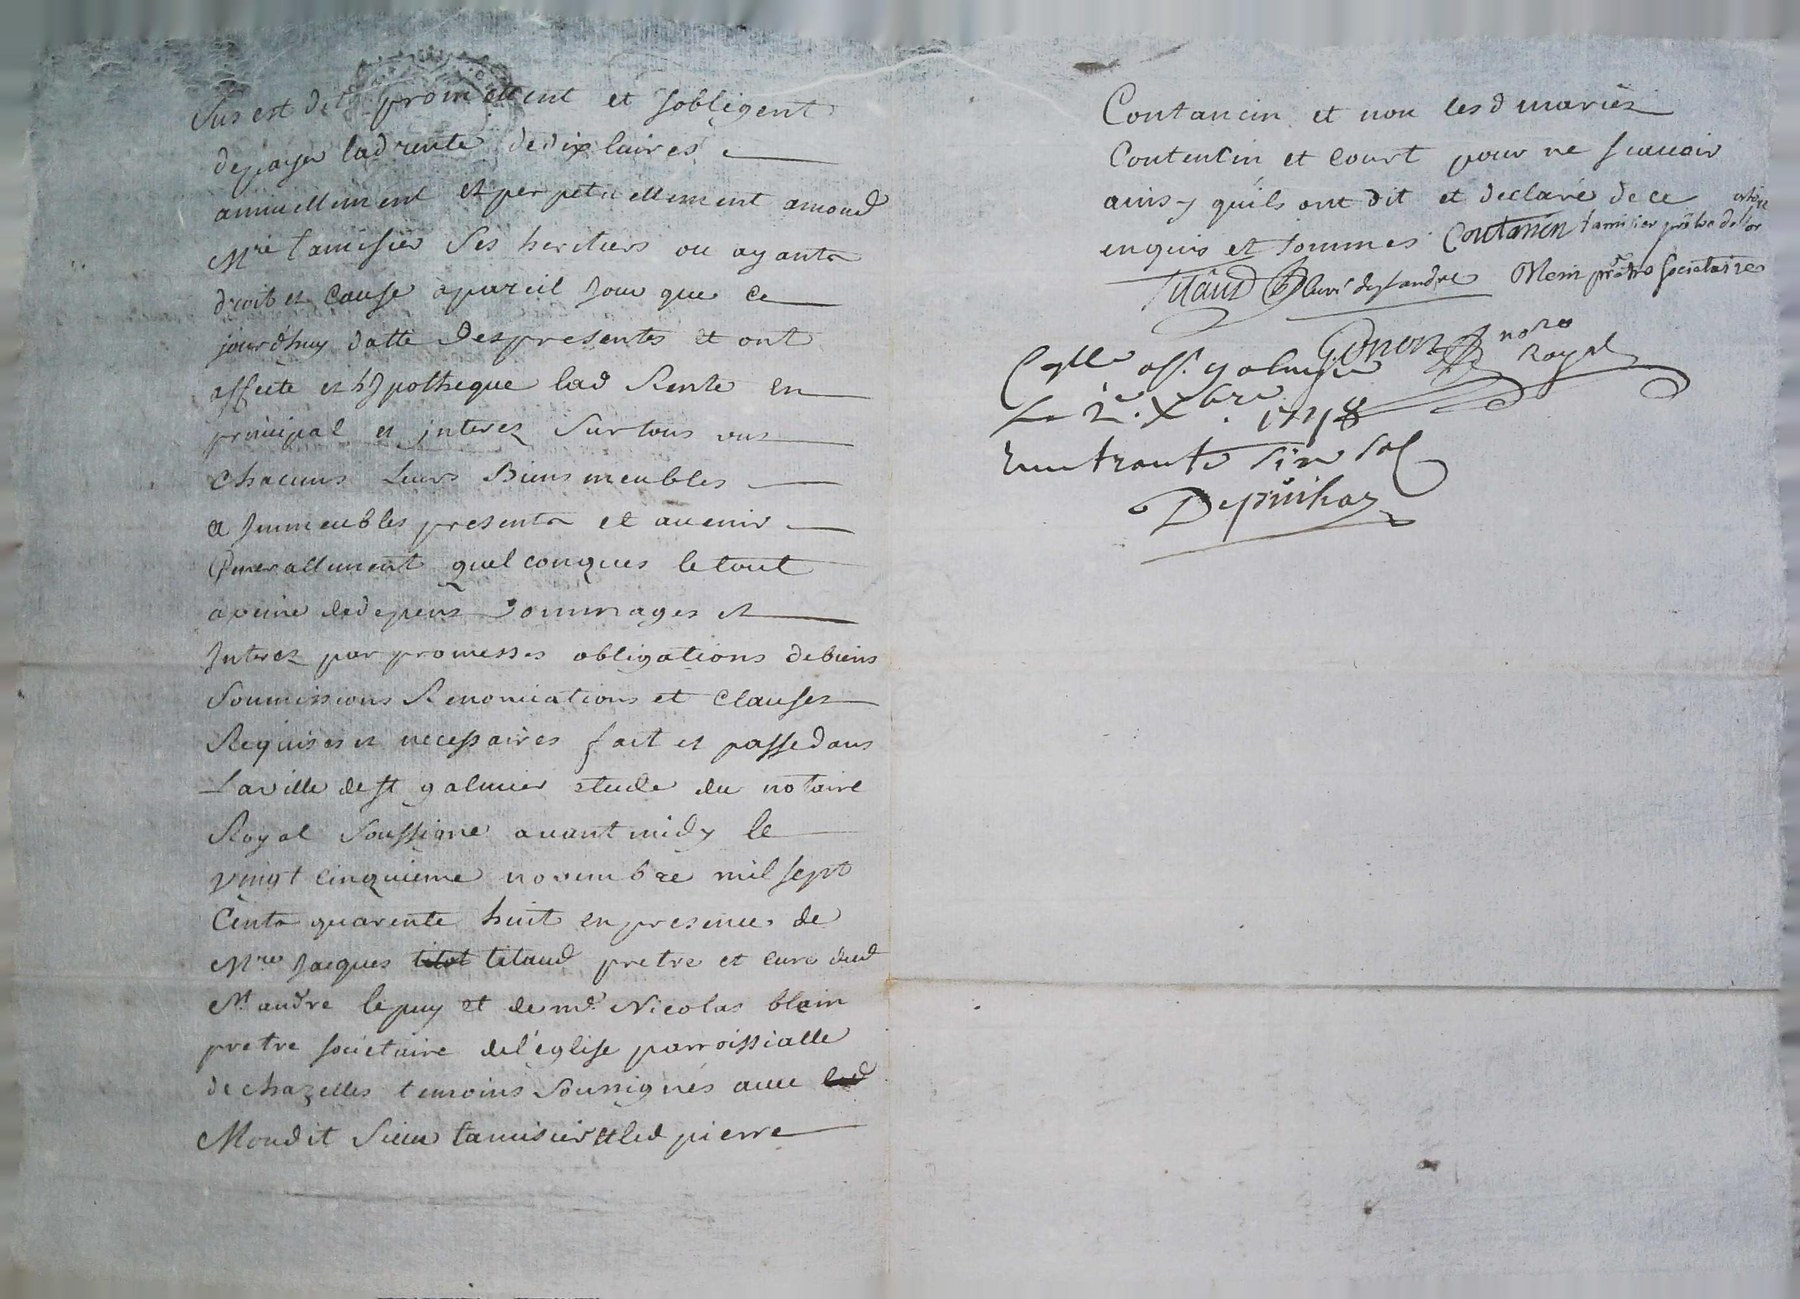 Sus est dit promettent et sobligent
depayer ladrente dedix livres
annuellement et perpetuellement amond
Mre tamisier ses heritiers ou ayants
droit et cause apareil jour que ce
jourdhuy datte despresentes et ont
affecte et hypotheque lad Rente en
principal et interes sur tous uns
chacuns leurs Biens meubles
et Immeubles presents et avenir
Generallement quelconques letout
apeine dedepens dommages et
Interes par promesses obligations debiens
Soumissions Renonciations et Clauses
Requises et necessaires fait et passé dans
La ville de st galmier etude du notaire
Royal soussigné avant midy le
vingt cinquieme novembre mil sept
Cents quarente huit en presence de
Mre Jacques titot titaud pretre et curé dud
st andre lepuy et de md Nicolas blein
pretre societaire del'église parroissialle
de chazelles temoins soussignés avec led
Mondit sieur tamisier et led pierre
Contancin et non lesd mariez
Contentin et Court pour ne scavoir
ainsy quils ont dit et declaré de ce
enquis et sommes Contancin tamisier
titaud Curé de st andre Blein societaire
Gonon nore Royal
à st galmier
Le 2e Xbre 1748
Reçu trante six sol